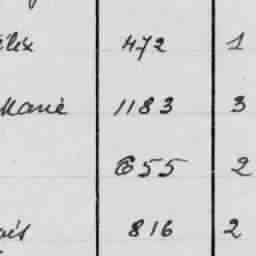 élix 472 1
Marie 1183 3
655 2
816 2